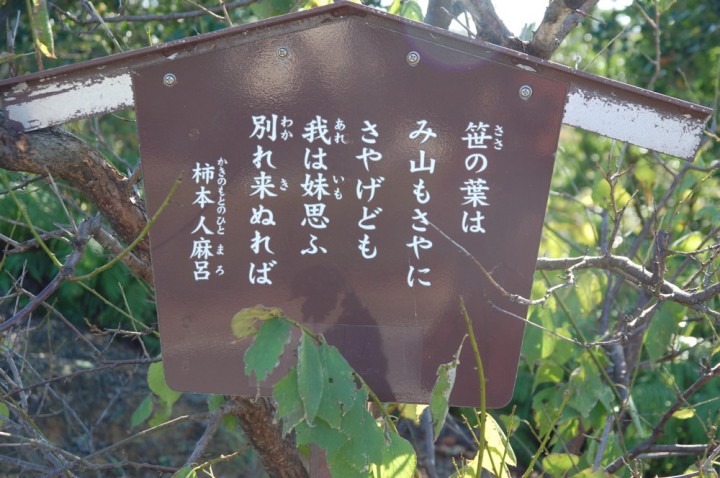 笹の葉は
み山もさやに
さやげども
我は妹思ふ
別れ来ぬれば
柿本人麻呂
ささ
あれ
いも
わか
き
かきのもとのひとまろ